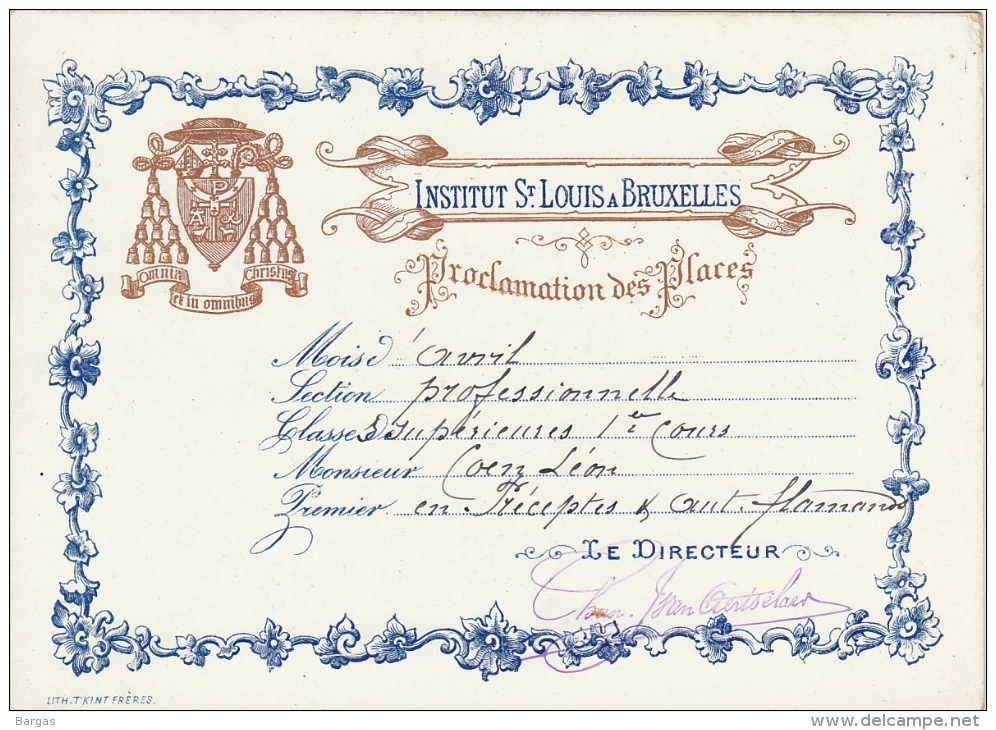 INSTITUT ST. LOUIS A BRUXELLES
Proclamation des Places
Omnia et in omnibus Christus
Mois d'avril
Section professionnelle
Classes supérieures 1er Cours
Monsieur Coen Léon
Premier en Préceptes & aut. flamands
LE DIRECTEUR
Chan. J. Van Aertselaer
LITH. T'KINT FRÈRES.
Bargas
www.delcampe.net